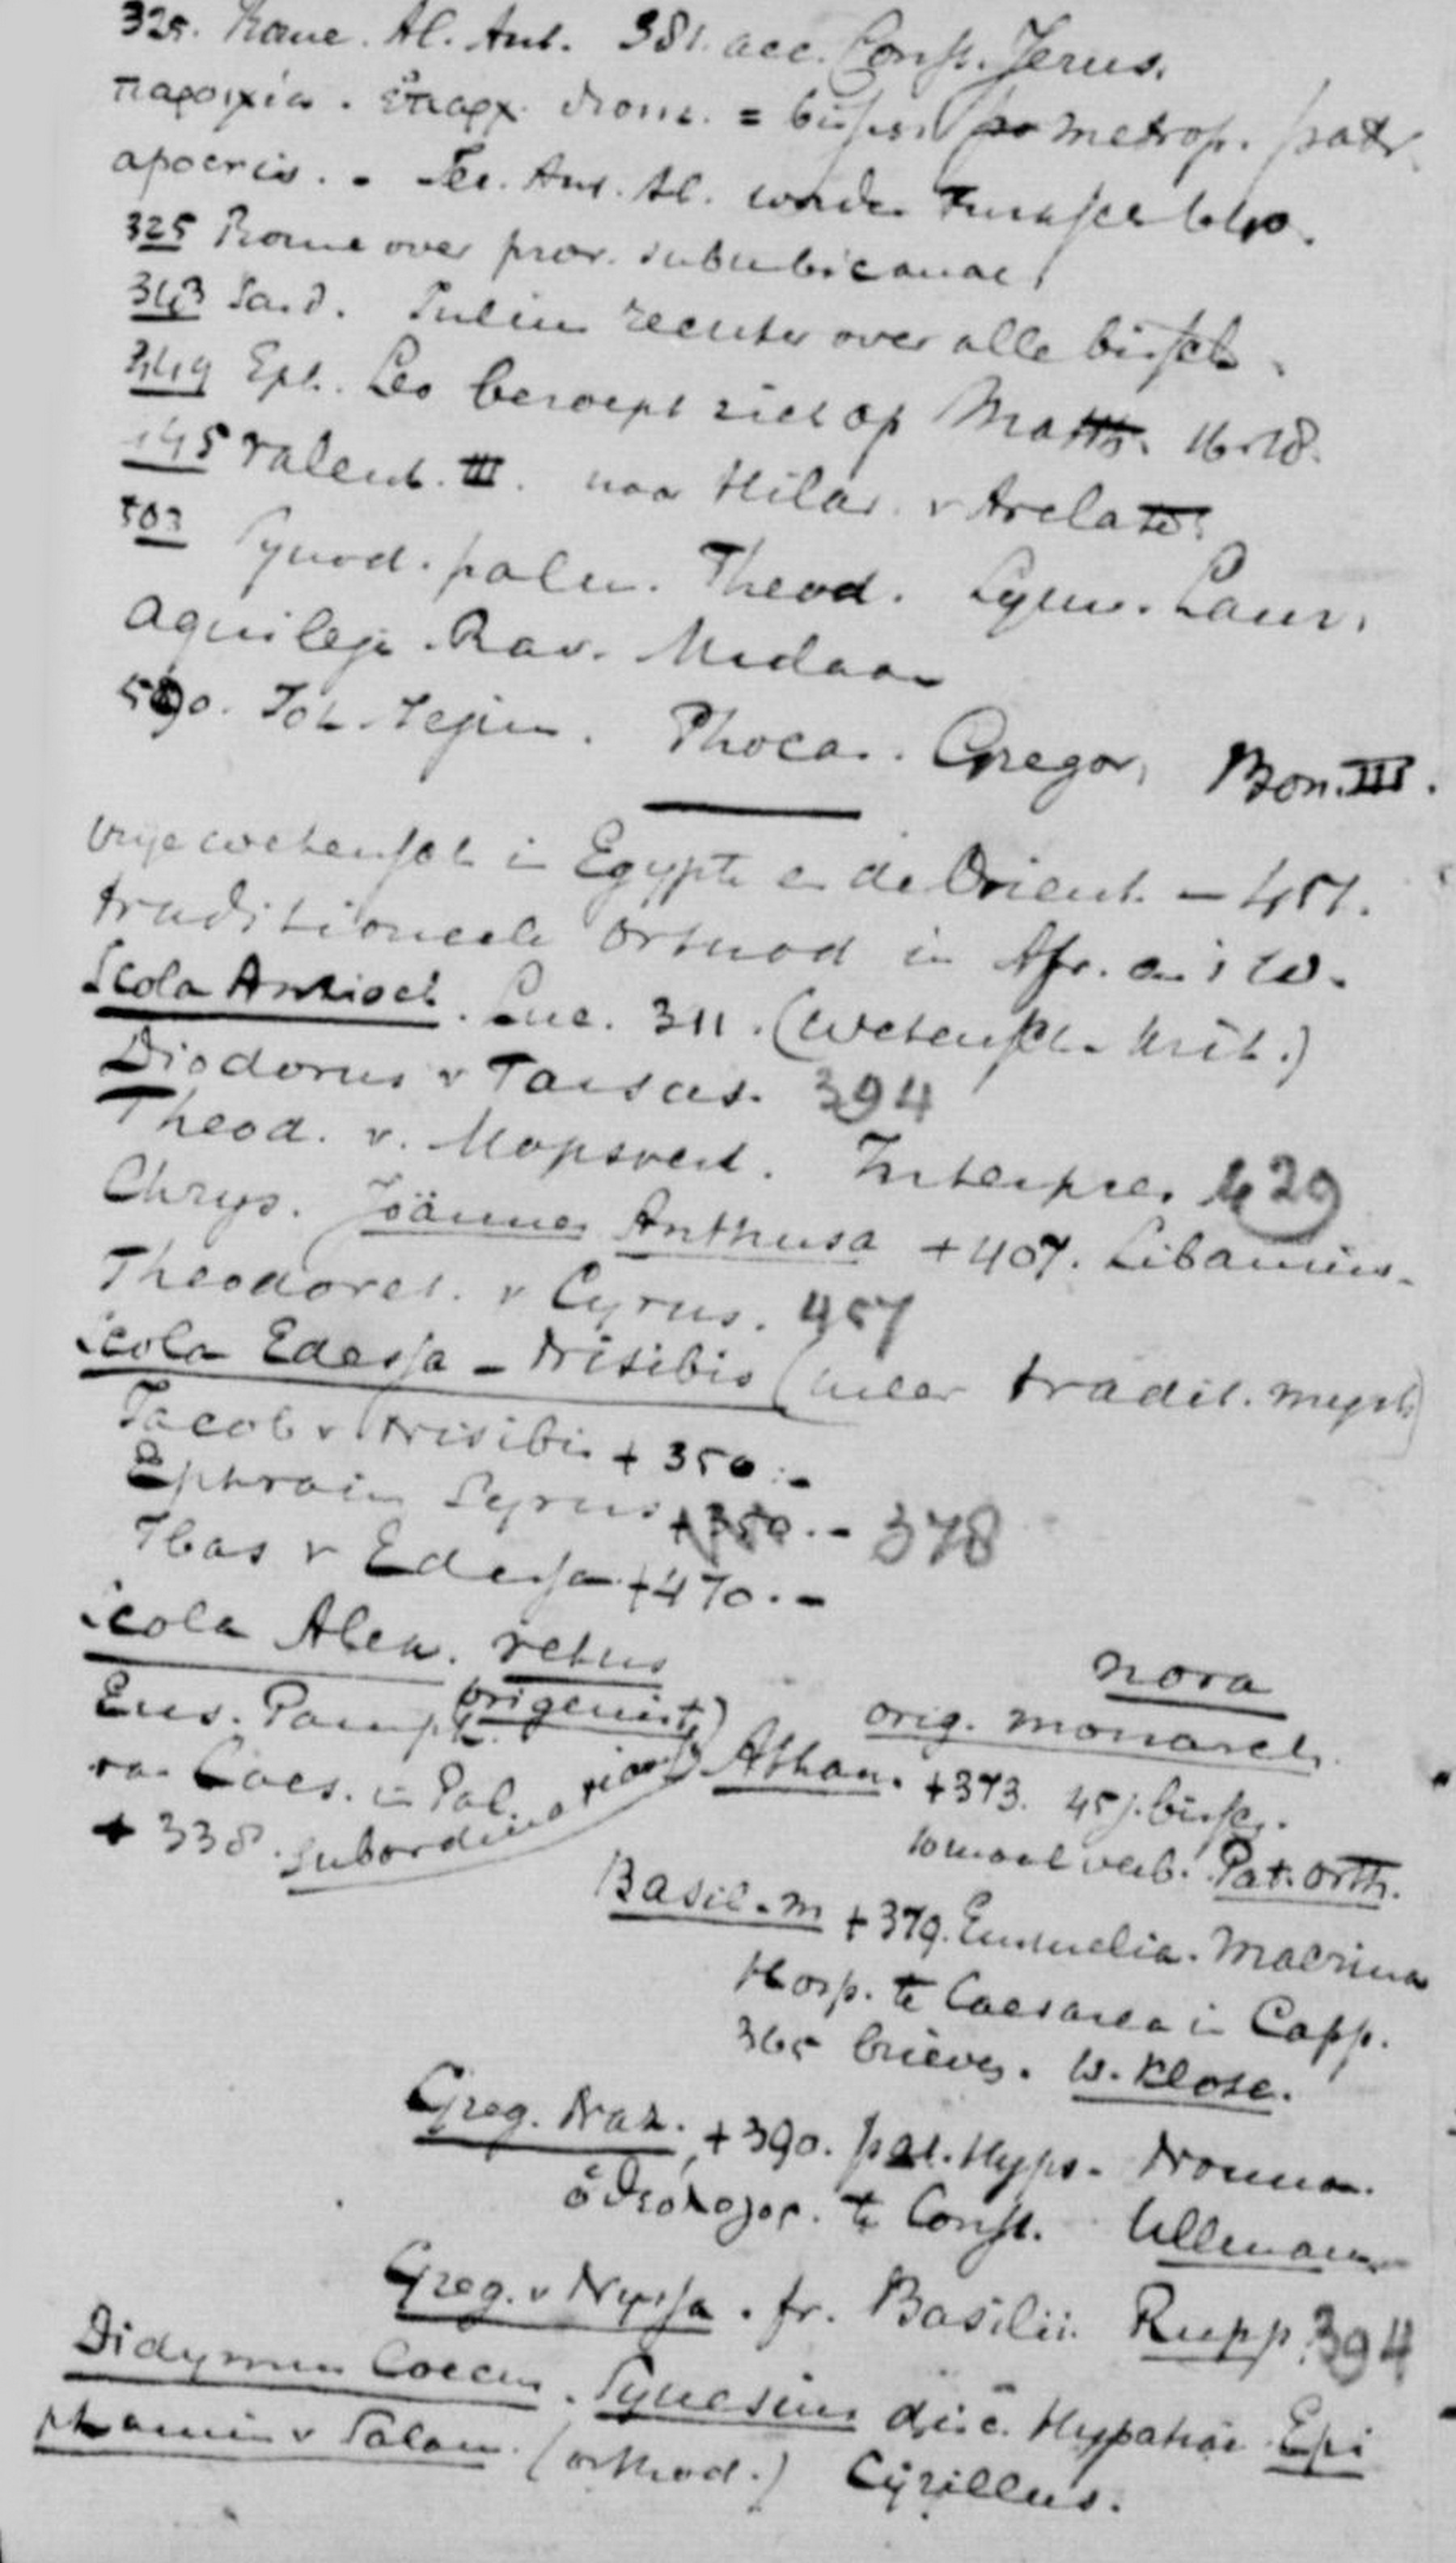 325. Rome. Al. Ant. 381. acc. Const. Jerus.
παροιχία. ἐπαρχ. διοικ. = bissch. metrop. patr
apocris. - Jer. Ant. Al. worden Turksch 640.
325 Rome over prov. suburbicariae.
343 Sard. Julius rechter over alle bissch.
449 Eph. Leo beroept zich op Matth. 16:18.
445 Valent. III. naar Hilar. v Arelate
503 Synod. palm. Theod. Symm. Laur.
Aquileja. Rav. Milaan
590. Joh. Jejun. Phocas. Gregor. Bon. III.
Vrije wetensch in Egypte en de Orient. - 451.
traditioneele orthod in Afr. en 't W.
Scola Antioch. Luc. 311. (wetensch. krit.)
Diodorus v Tarsus. 394
Theod. v. Mopsvest. Interpres 429
Chrys. Joännes Anthusa +407. Libanius.
Theodoret. v Cyrus. 457
Scola Edessa - Nisibis (meer tradit. myst)
Jacob v Nisibis + 350.-
Ephraim Syrus +350.- 378
Ibas v Edessa +470.-
Scola Alex. vetus
(origenist)
Eus. Pamph.
van Caes. in Pal.
+ 338. subordinatiaan
nova
orig. monarch.
Athan. +373. 45 j. bissch.
10 maal verb. Pat. orth.
Basil. m +379. Emmelia. Macrina
Hosp. te Caesarea in Capp.
365 brieven. W. Klose.
Greg. Naz. +390. pat. Hyps. Nonna.
ὁ θεόλογος. te Const. Ullmann
Greg. v Nyssa. fr. Basilii. Rupp. 394
Didymus Coecus. Synesius disc. Hypatiae Epi
phanius v Salam. (orthod.) Cyrillus.